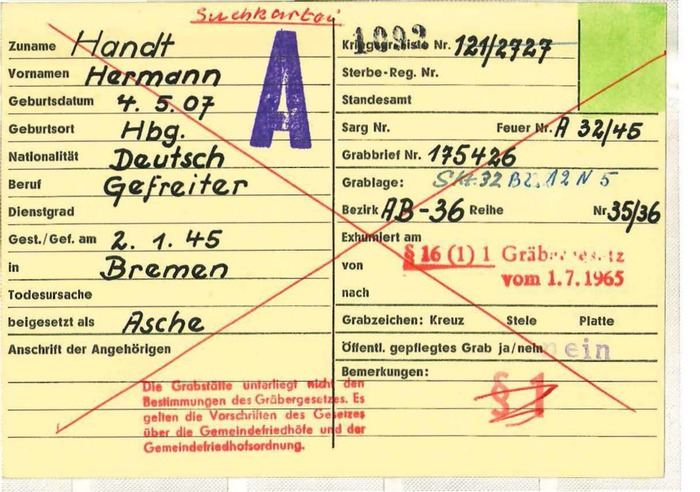 Suchkartei
Zuname Handt
Vornamen Hermann
Geburtsdatum 4. 5. 07
Geburtsort Hbg.
Nationalität Deutsch
Beruf Gefreiter
Dienstgrad
Gest./Gef. am 2. 1. 45
in Bremen
Todesursache
beigesetzt als Asche
Anschrift der Angehörigen
A
Die Grabstätte unterliegt nicht den
Bestimmungen des Gräbergesetzes. Es
gelten die Vorschriften des Gesetzes
über die Gemeindefriedhöfe und der
Gemeindefriedhofsordnung.
1092
Kriegsgr.liste Nr. 121/2727
Sterbe-Reg. Nr.
Standesamt
Sarg Nr. Feuer Nr. A 32/45
Grabbrief Nr. 175426
Grablage: 32 BZ. 12 N 5
Bezirk AB-36 Reihe Nr. 35/36
Exhumiert am
§ 16 (1) 1 Gräbergesetz
von
vom 1.7.1965
nach
Grabzeichen: Kreuz Stele Platte
Öffentl. gepflegtes Grab ja/nein nein
Bemerkungen:
§ 1